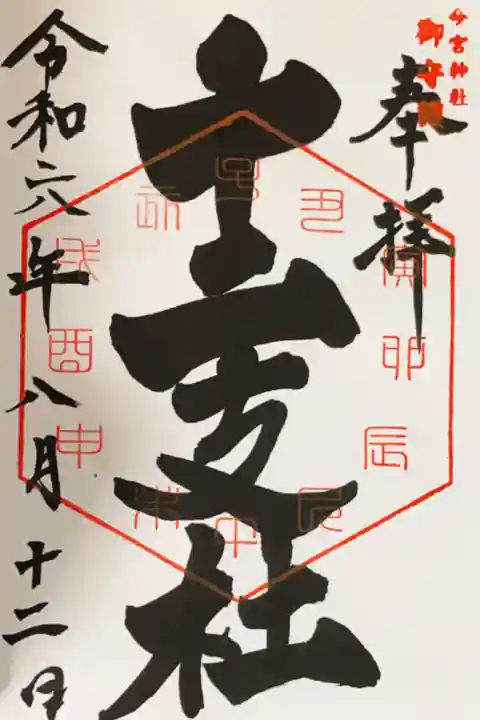 今宮神社
奉拝
十二支社
令和六年八月十二日
子
丑
寅
卯
辰
巳
午
未
申
酉
戌
亥